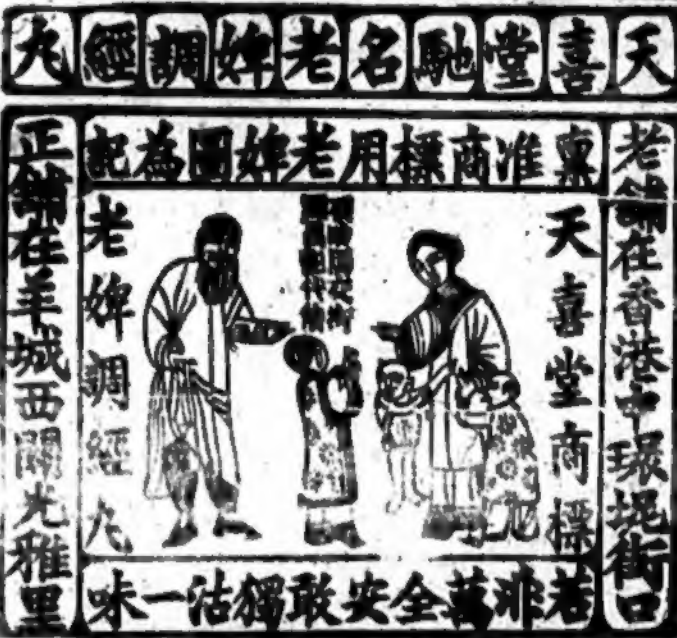 天喜堂馳名老婢調經丸
稟准商標用老婢圖為記
老舖在香港中環街口
天喜堂商標
老婢調經丸
正舖在羊城西關光雅里
若非萬全安敢獨沽一味